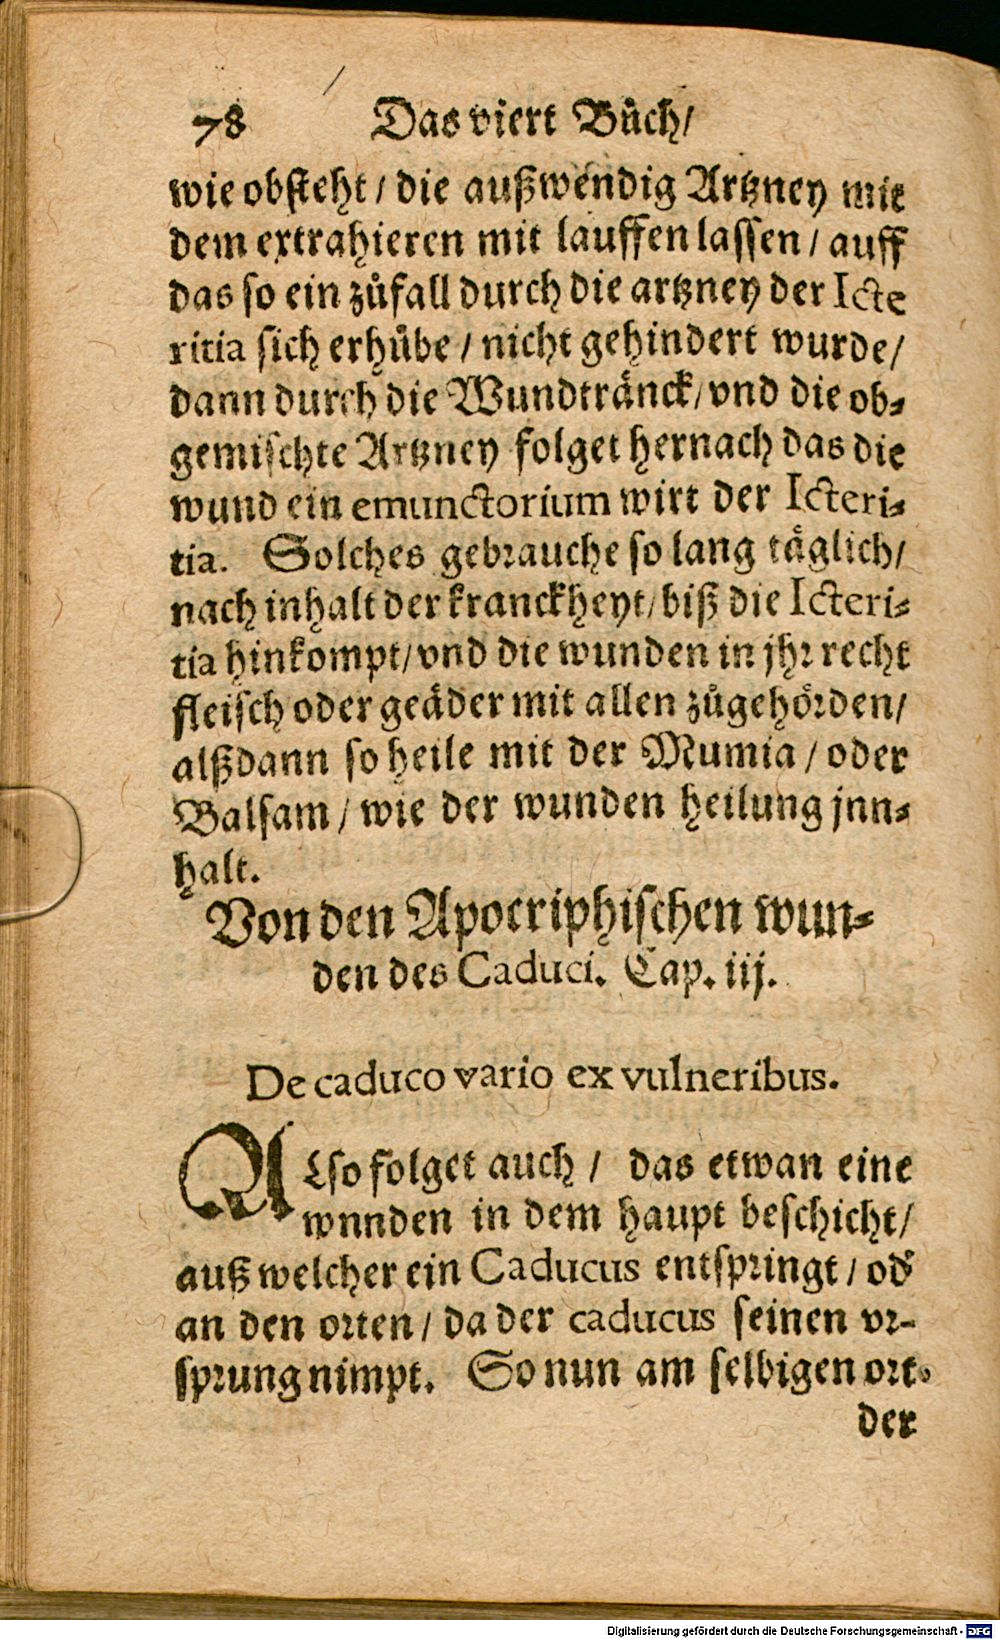 78 Das viert Bůch/
wie obsteht / die außwendig Artzney mit
dem extrahieren mit lauffen lassen / auff
das so ein zůfall durch die artzney der Icte
ritia sich erhůbe / nicht gehindert wurde/
dann durch die Wundtränck/ vnd die ob⸗
gemischte Artzney folget hernach das die
wund ein emunctorium wirt der Icteri⸗
tia. Solches gebrauche so lang täglich/
nach inhalt der kranckheyt/ biß die Icteri⸗
tia hinkompt/ vnd die wunden in jhr recht
fleisch oder geäder mit allen zůgehörden/
alßdann so heile mit der Mumia / oder
Balsam / wie der wunden heilung jnn⸗
halt.
Von den Apocriphischen wun⸗
den des Caduci. Cap. iij.
De caduco vario ex vulneribus.
ALso folget auch / das etwan eine
wnnden in dem haupt beschicht/
auß welcher ein Caducus entspringt / od'
an den orten / da der caducus seinen vr-
sprung nimpt. So nun am selbigen ort.
der
Digitalisierung gefördert durch die Deutsche Forschungsgemeinschaft - DFG